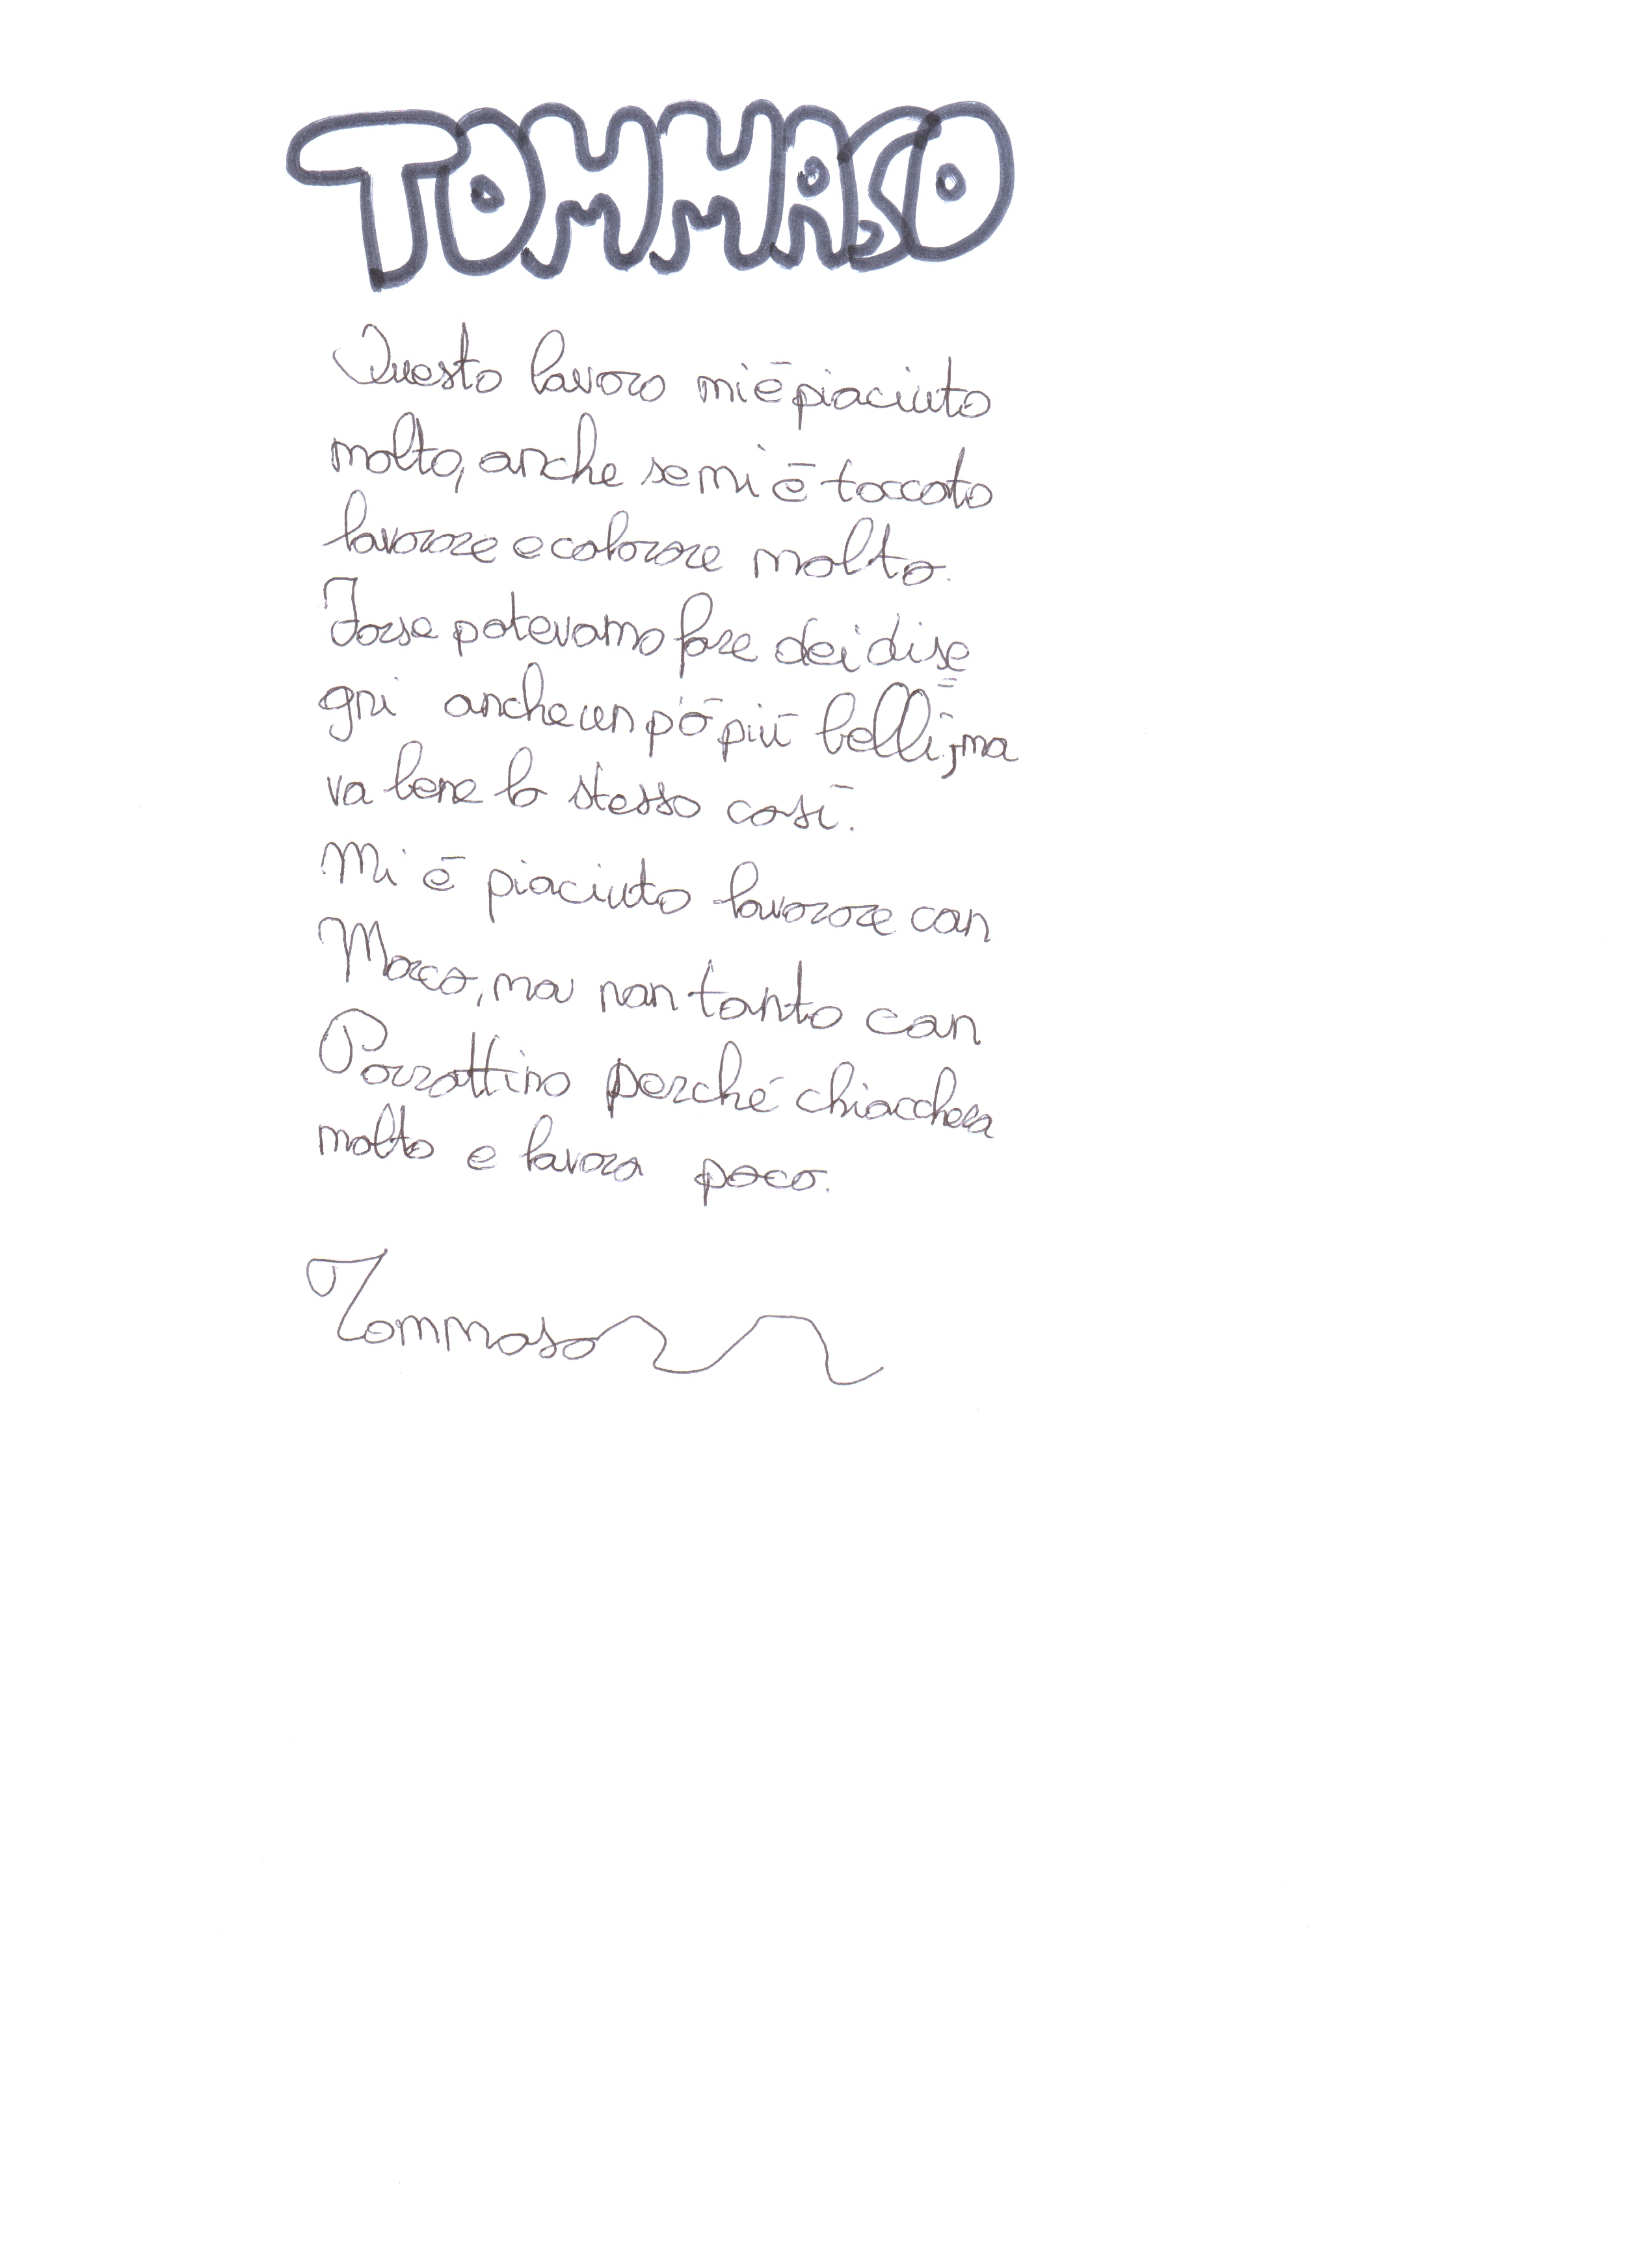 TOMMASO
Questo lavoro mi è piaciuto
molto, anche se mi è toccato
lavorare e colorare molto.
Forse potevamo fare dei dise
gni anche un pò più belli, ma
va bene lo stesso così.
Mi è piaciuto lavorare con
Marco, ma non tanto con
perché chiacchera
molto e lavora poco.
Tommaso